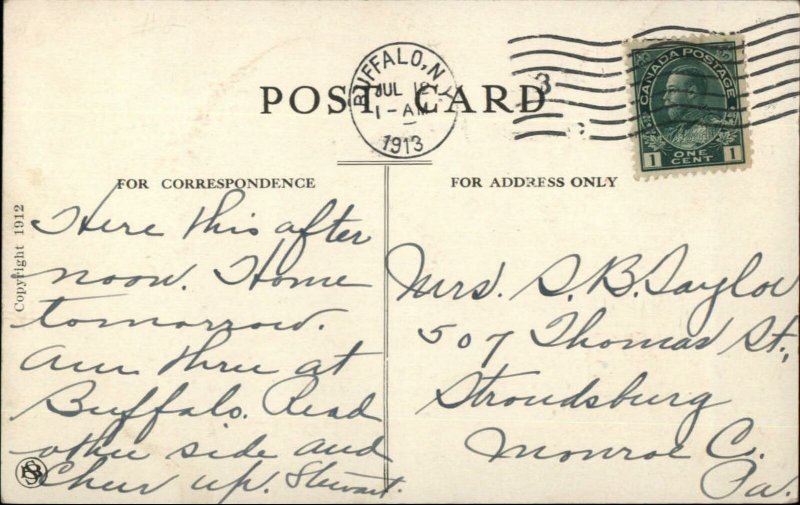 POST CARD
BUFFALO, N.Y.
JUL 12
1-AM
1913
3
CANADA POSTAGE
1 ONE CENT 1
FOR CORRESPONDENCE
FOR ADDRESS ONLY
Copyright 1912
Here this after
noon. Home
tomorrow.
Am thru at
Buffalo. Read
other side and
Cheer up. Stewart.
Mrs. S. B. Taylor
507 Thomas St.,
Stroudsburg
Monroe C.
Pa.